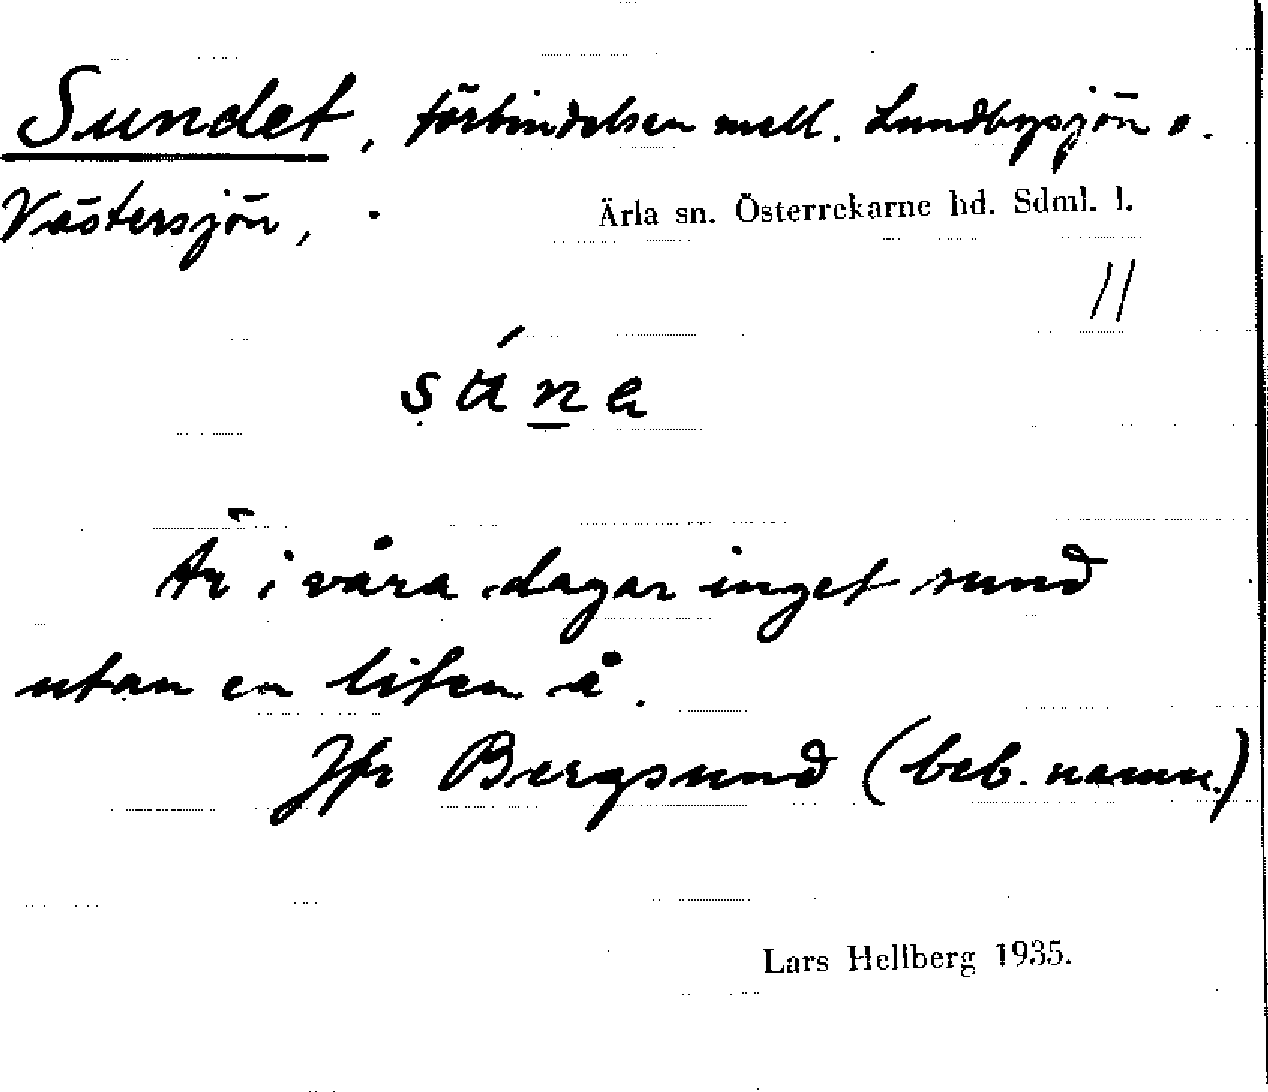 Sundet, förbindelsen mell. Lundbysjön o.
Västersjön,
Ärla sn. Österrekarne hd. Sdml. l.
11
súne
Är i våra dagar inget sund
utan en liten å.
Jfr Bergsund (beb. namn.)
Lars Hellberg 1935.